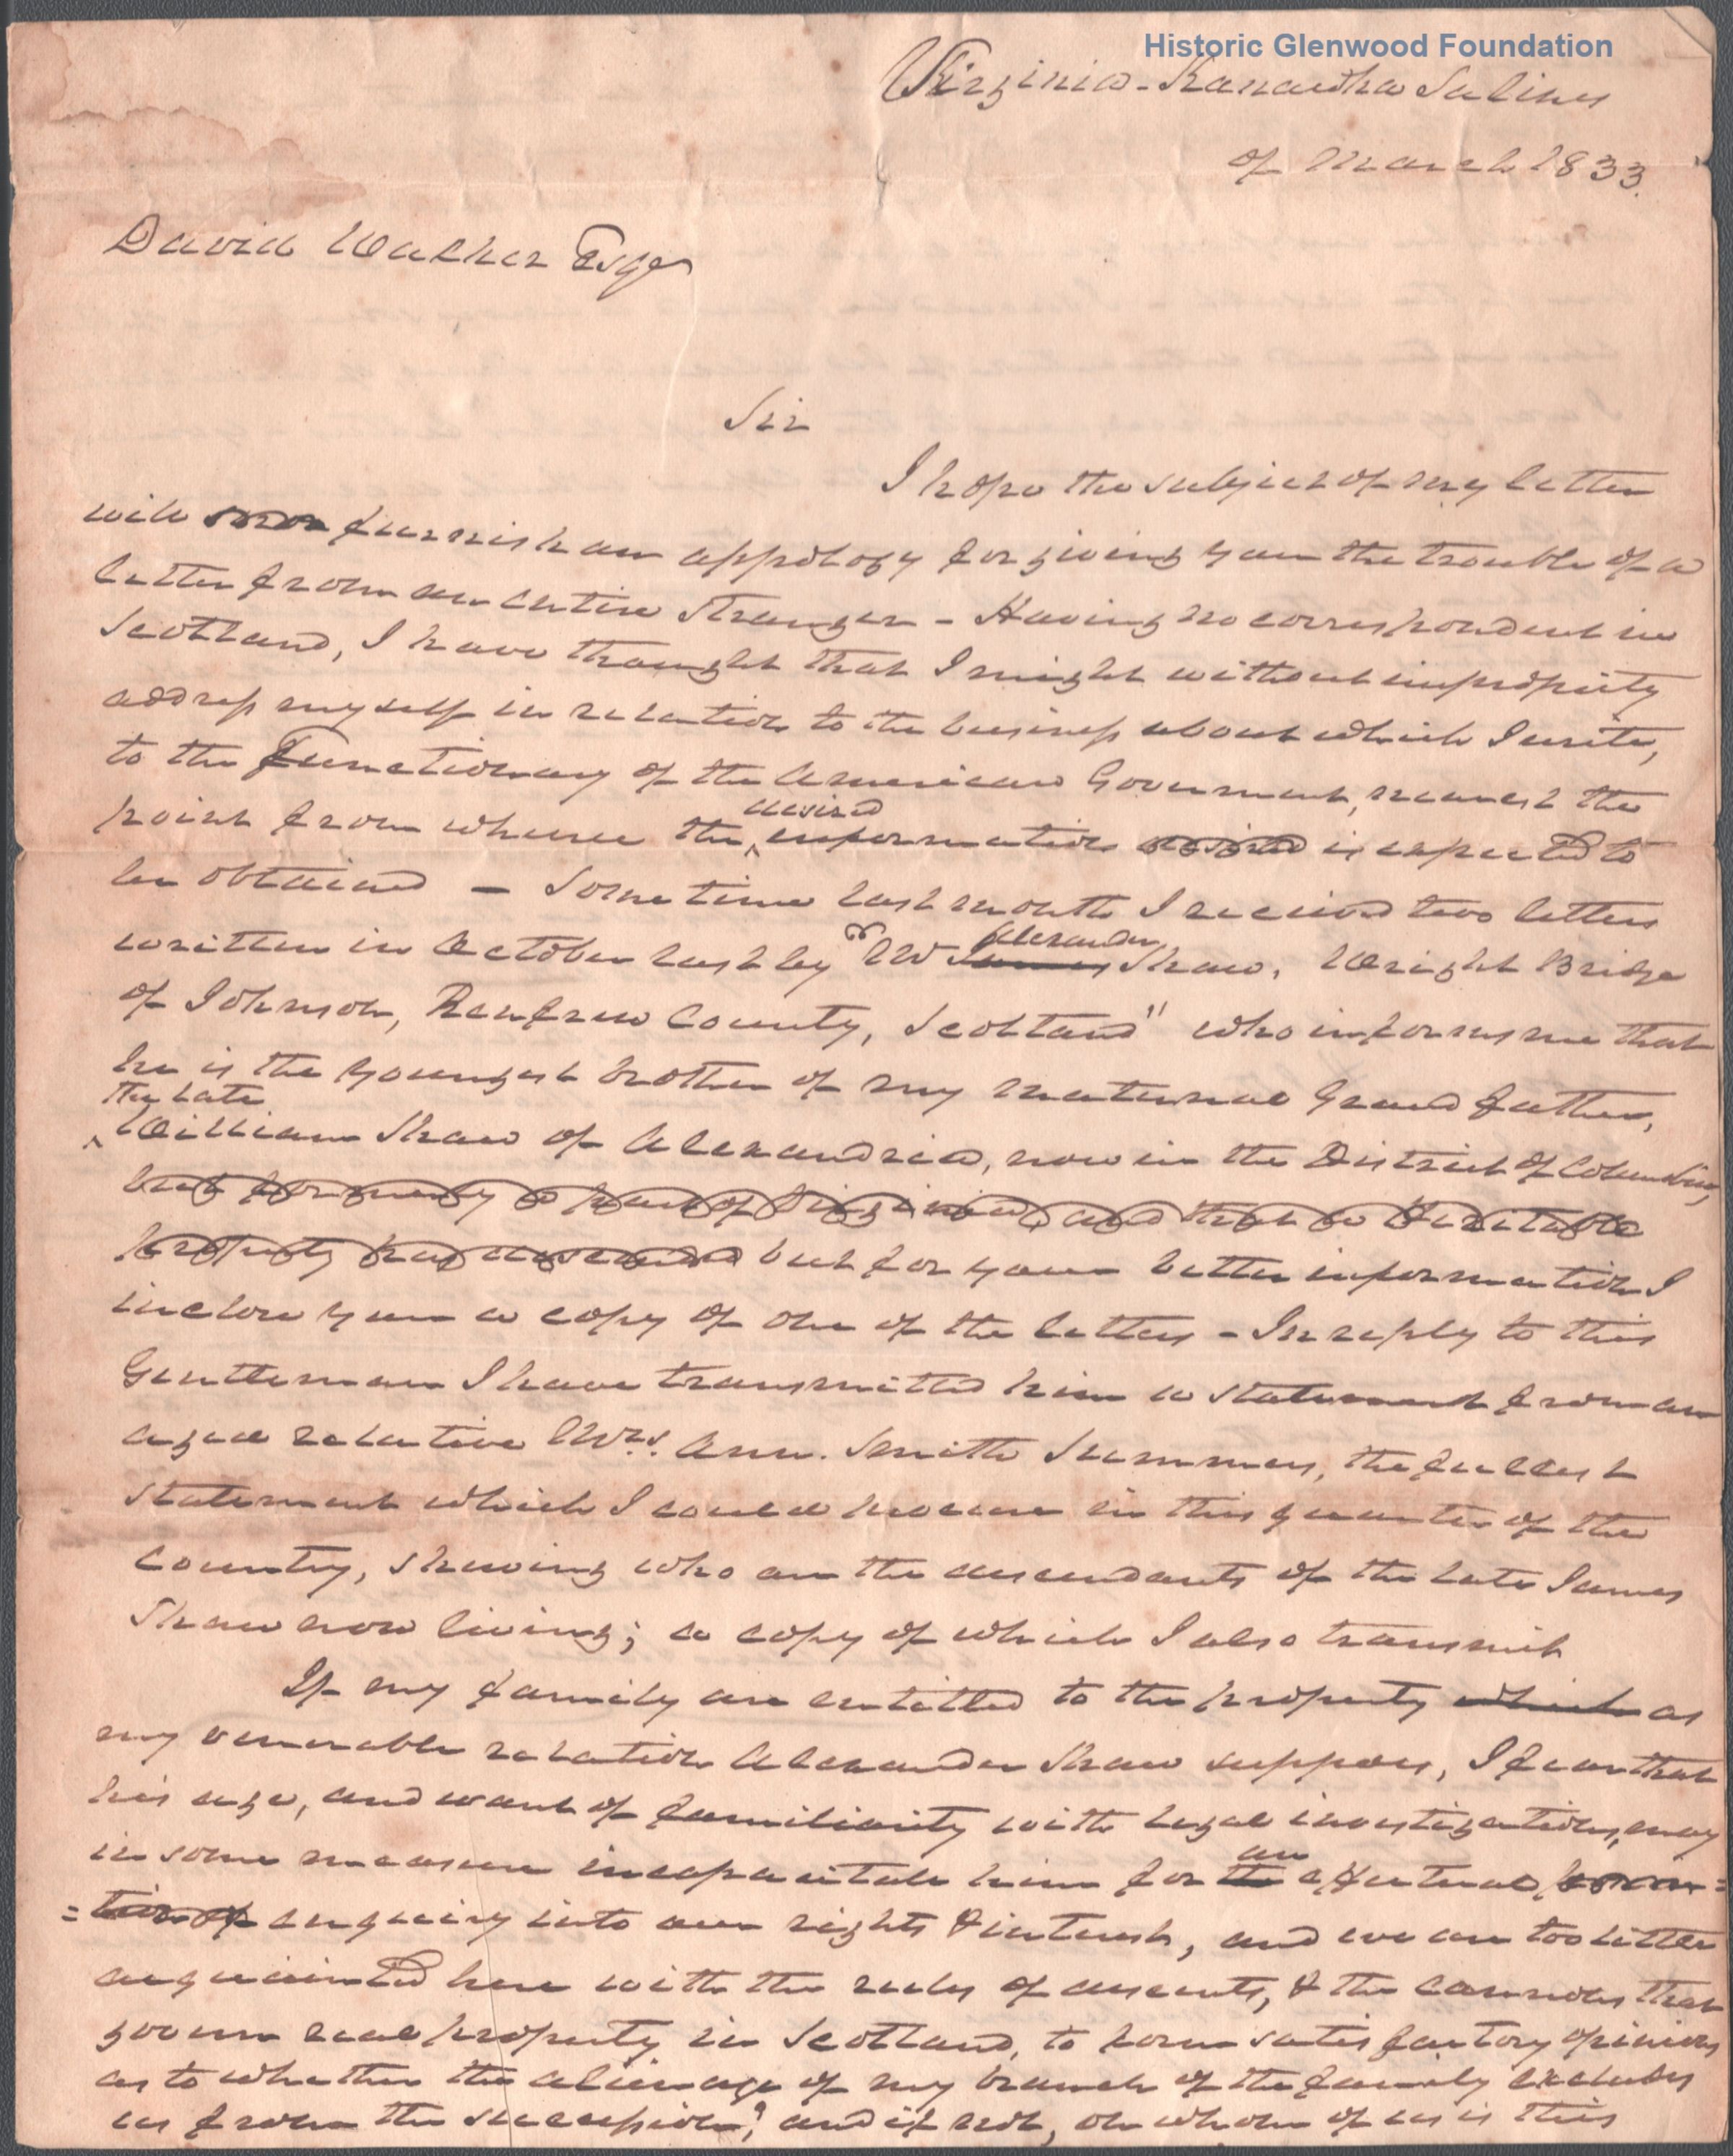 Historic Glenwood Foundation
Virginia - Kanawha Salines
of March 1833.
David Walker Esqr
Sir
I hope the subject of my letter
will furnish an appology for giving you the trouble of a
letter from an entire stranger - Having no correspondent in
Scotland, I have thought that I might without impropriety
address myself in relation to the business about which I write,
to the Functionary of the American Government, nearest the
desired
point from whence the information desired is expected to
be obtained - Some time last month I received two letters
Alexander
written in October last by "Mr James Shaw, Wright Bridge
of Johnson, Renfrew County, Scotland" who informs me that
he is the youngest brother of my maternal Grand father,
The late
William Shaw of Alexandria, now in the District of Columbia,
but formerly a part of Virginia, and that a Heritable
property has descended but for your better information I
inclose you a copy of one of the letters - In reply to this
Gentleman I have transmitted him a statement from an
aged relative Mrs. Ann. Smith Summers, the fullest
statement which I could procure in this quarter of the
Country, shewing who are the descendants of the late James
Shaw now living; a copy of which I also transmit
If my family are entitled to the property which as
my venerable relation Alexander Shaw supposes, I fear that
his age, and want of familiarity with legal investigations, may
an
in some measure incapacitate him for the effectual
enquiry into our rights & interest, and we are too little
acquainted here with the rules of descents, & the cannons that
govern real property in Scotland, to form satisfactory opinions
as to whether the alienage of my branch of the family excludes
us from the succession? and if not, on whom of us is this